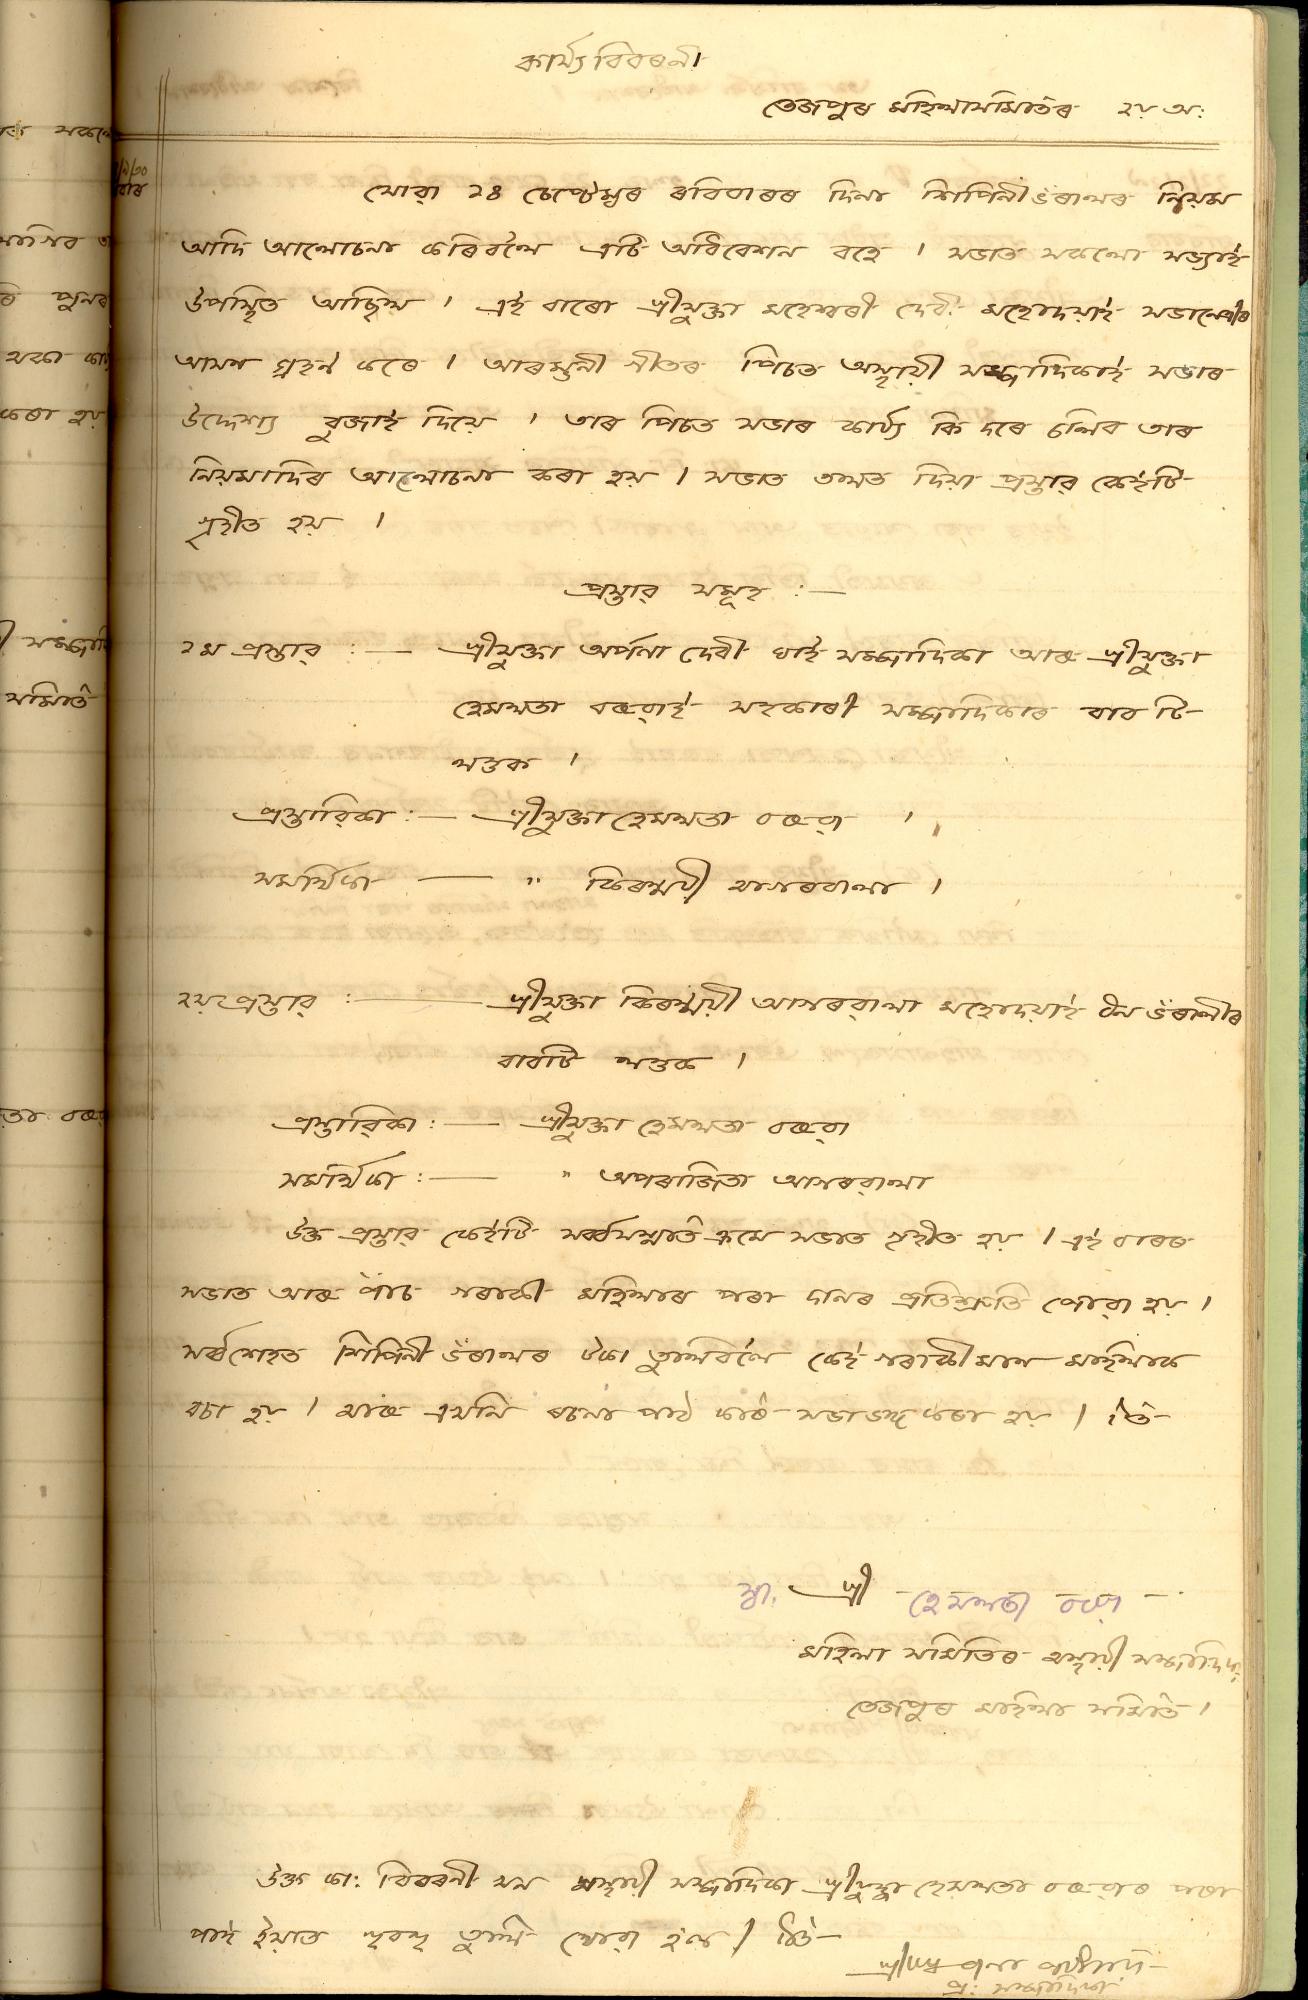 কাৰ্য্য বিবৰণী
তেজপুৰ মহিলা সমিতিৰ ২য় অ:
যোৱা ২৪ চেপ্টেম্বৰ ৰবিবাৰৰ দিনা শিপিনী ভঁৰালৰ নিয়ম
আদি আলোচনা কৰিবলৈ এটি অধিবেশন বহে । সভাত সকলো সভ্যাই
উপস্থিত আছিল । এই বাৰো শ্ৰীযুক্তা মহেশ্বৰী দেবী মহোদয়াই সভানেত্ৰীৰ
আসন গ্ৰহন কৰে । আৰম্ভনী গীতৰ পিচত অস্থায়ী সম্পাদিকাই সভাৰ
উদ্দেশ্য বুজাই দিয়ে । তাৰ পিচত সভাৰ কাৰ্য্য কি দৰে চলিব তাৰ
নিয়মাদিৰ আলোচনা কৰা হয় । সভাত তলত দিয়া প্ৰস্তাৱ কেইটি
গৃহীত হয় ।
প্ৰস্তাৱ সমূহ :—
১ম প্ৰস্তাৱ :— শ্ৰীযুক্তা অৰ্পনা দেবী ঘাই সম্পাদিকা আৰু শ্ৰীযুক্তা
হেমলতা বৰুৱাই সহকাৰী সম্পাদিকাৰ বাব টি
লওক ।
প্ৰস্তাৱিকা :— শ্ৰীযুক্তা হেমলতা বৰুৱা ।
সমৰ্থিকা — " কিৰন্ময়ী আগৰবালা ।
২য় প্ৰস্তাৱ :— শ্ৰীযুক্তা কিৰন্ময়ী আগৰৱালা মহোদয়াই ধন ভঁৰালীৰ
বাবটি লওক ।
প্ৰস্তাৱিকা :— শ্ৰীযুক্তা হেমলতা বৰুৱা
সমৰ্থিকা :— " অপৰাজিতা আগৰৱালা
উক্ত প্ৰস্তাৱ কেইটি সৰ্ব্বসন্মতি ক্ৰমে সভাত গৃহীত হয় । এই বাৰৰ
সভাত আৰু পাঁচ গৰাকী মহিলাৰ পৰা দানৰ প্ৰতিশ্ৰুতি পোৱা হয় ।
সৰ্ব্বশেহত শিপিনী ভঁৰালৰ টকা তুলিবলৈ কেই গৰাকীমান মহিলাক
বচা হয় । আৰু এখনি ৰচনা পাঠ কৰি সভা ভঙ্গ কৰা হয় । ইতি
স্বা. শ্ৰী হেমলতা বৰুৱা
মহিলা সমিতিৰ অস্থায়ী সম্পাদিকা
তেজপুৰ মহিলা সমিতি ।
উক্ত কা: বিবৰনী খন অস্থায়ী সম্পাদিকা শ্ৰীযুক্তা হেমলতা বৰুৱাৰ পৰা
পাই ইয়াত হুবহু তুলি থোৱা হ'ল । ইতি
প্ৰ: সম্পাদিকা